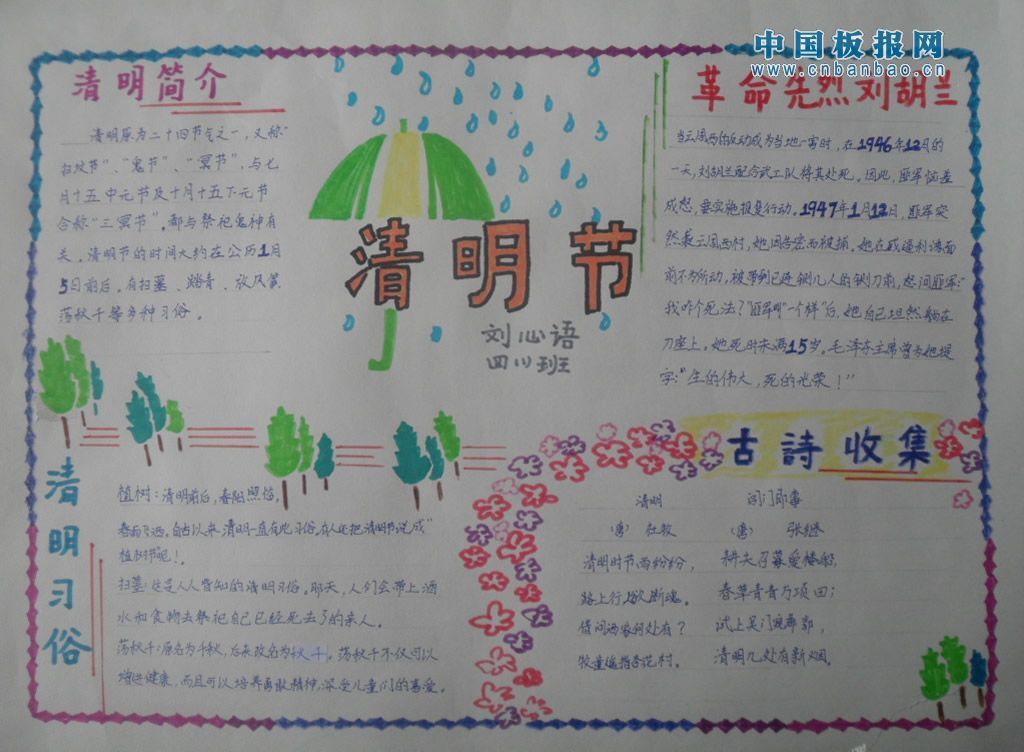 中国板报网
www.cnbanbao.cn
清明简介
清明原为二十四节气之一，又称“
扫坟节”、“鬼节”、“冥节”，与七
月十五中元节及十月十五下元节
合称“三冥节”。都与祭祀鬼神有
关。清明节的时间大约在公历1月
5日前后。有扫墓、踏青、放风筝
荡秋千等多种习俗。
清明节
刘心语
四(1)班
革命先烈刘胡兰
当云周西的反动成为当地一害时，在1946年12月的
一天，刘胡兰配合武工队将其处死。因此，匪军恼羞
成怒，要实施报复行动。1947年1月12日，匪军突
然袭云周西村，她因告密而被捕。她在威逼利诱面
前不为所动，被带到已连铡几人的铡刀前，怒问匪军：“
我咋个死法？”匪军喝“一个样”后，她自己坦然躺在
刀座上。她死时未满15岁。毛泽东主席曾为她提
字：“生的伟大，死的光荣！”
清明习俗
植树：清明前后，春阳照临，
春雨飞洒。自古以来，清明一直有此习俗。有人还把清明节说成“
植树节”呢！
扫墓：这是人人皆知的清明习俗。那天，人们会带上酒
水和食物去祭祀自己已经死去了的亲人。
荡秋千：原名为千秋，后来改名为秋千。荡秋千不仅可以
增进健康，而且可以培养勇敢精神，深受儿童们的喜爱。
古詩收集
清明
（唐） 杜牧
清明时节雨纷纷，
路上行人欲断魂。
借问酒家何处有？
牧童遥指杏花村。
闾门即事
（唐） 张继
耕夫召募爱楼船，
春草青青万项田；
试上吴门窥郡郭，
清明几处有新烟。